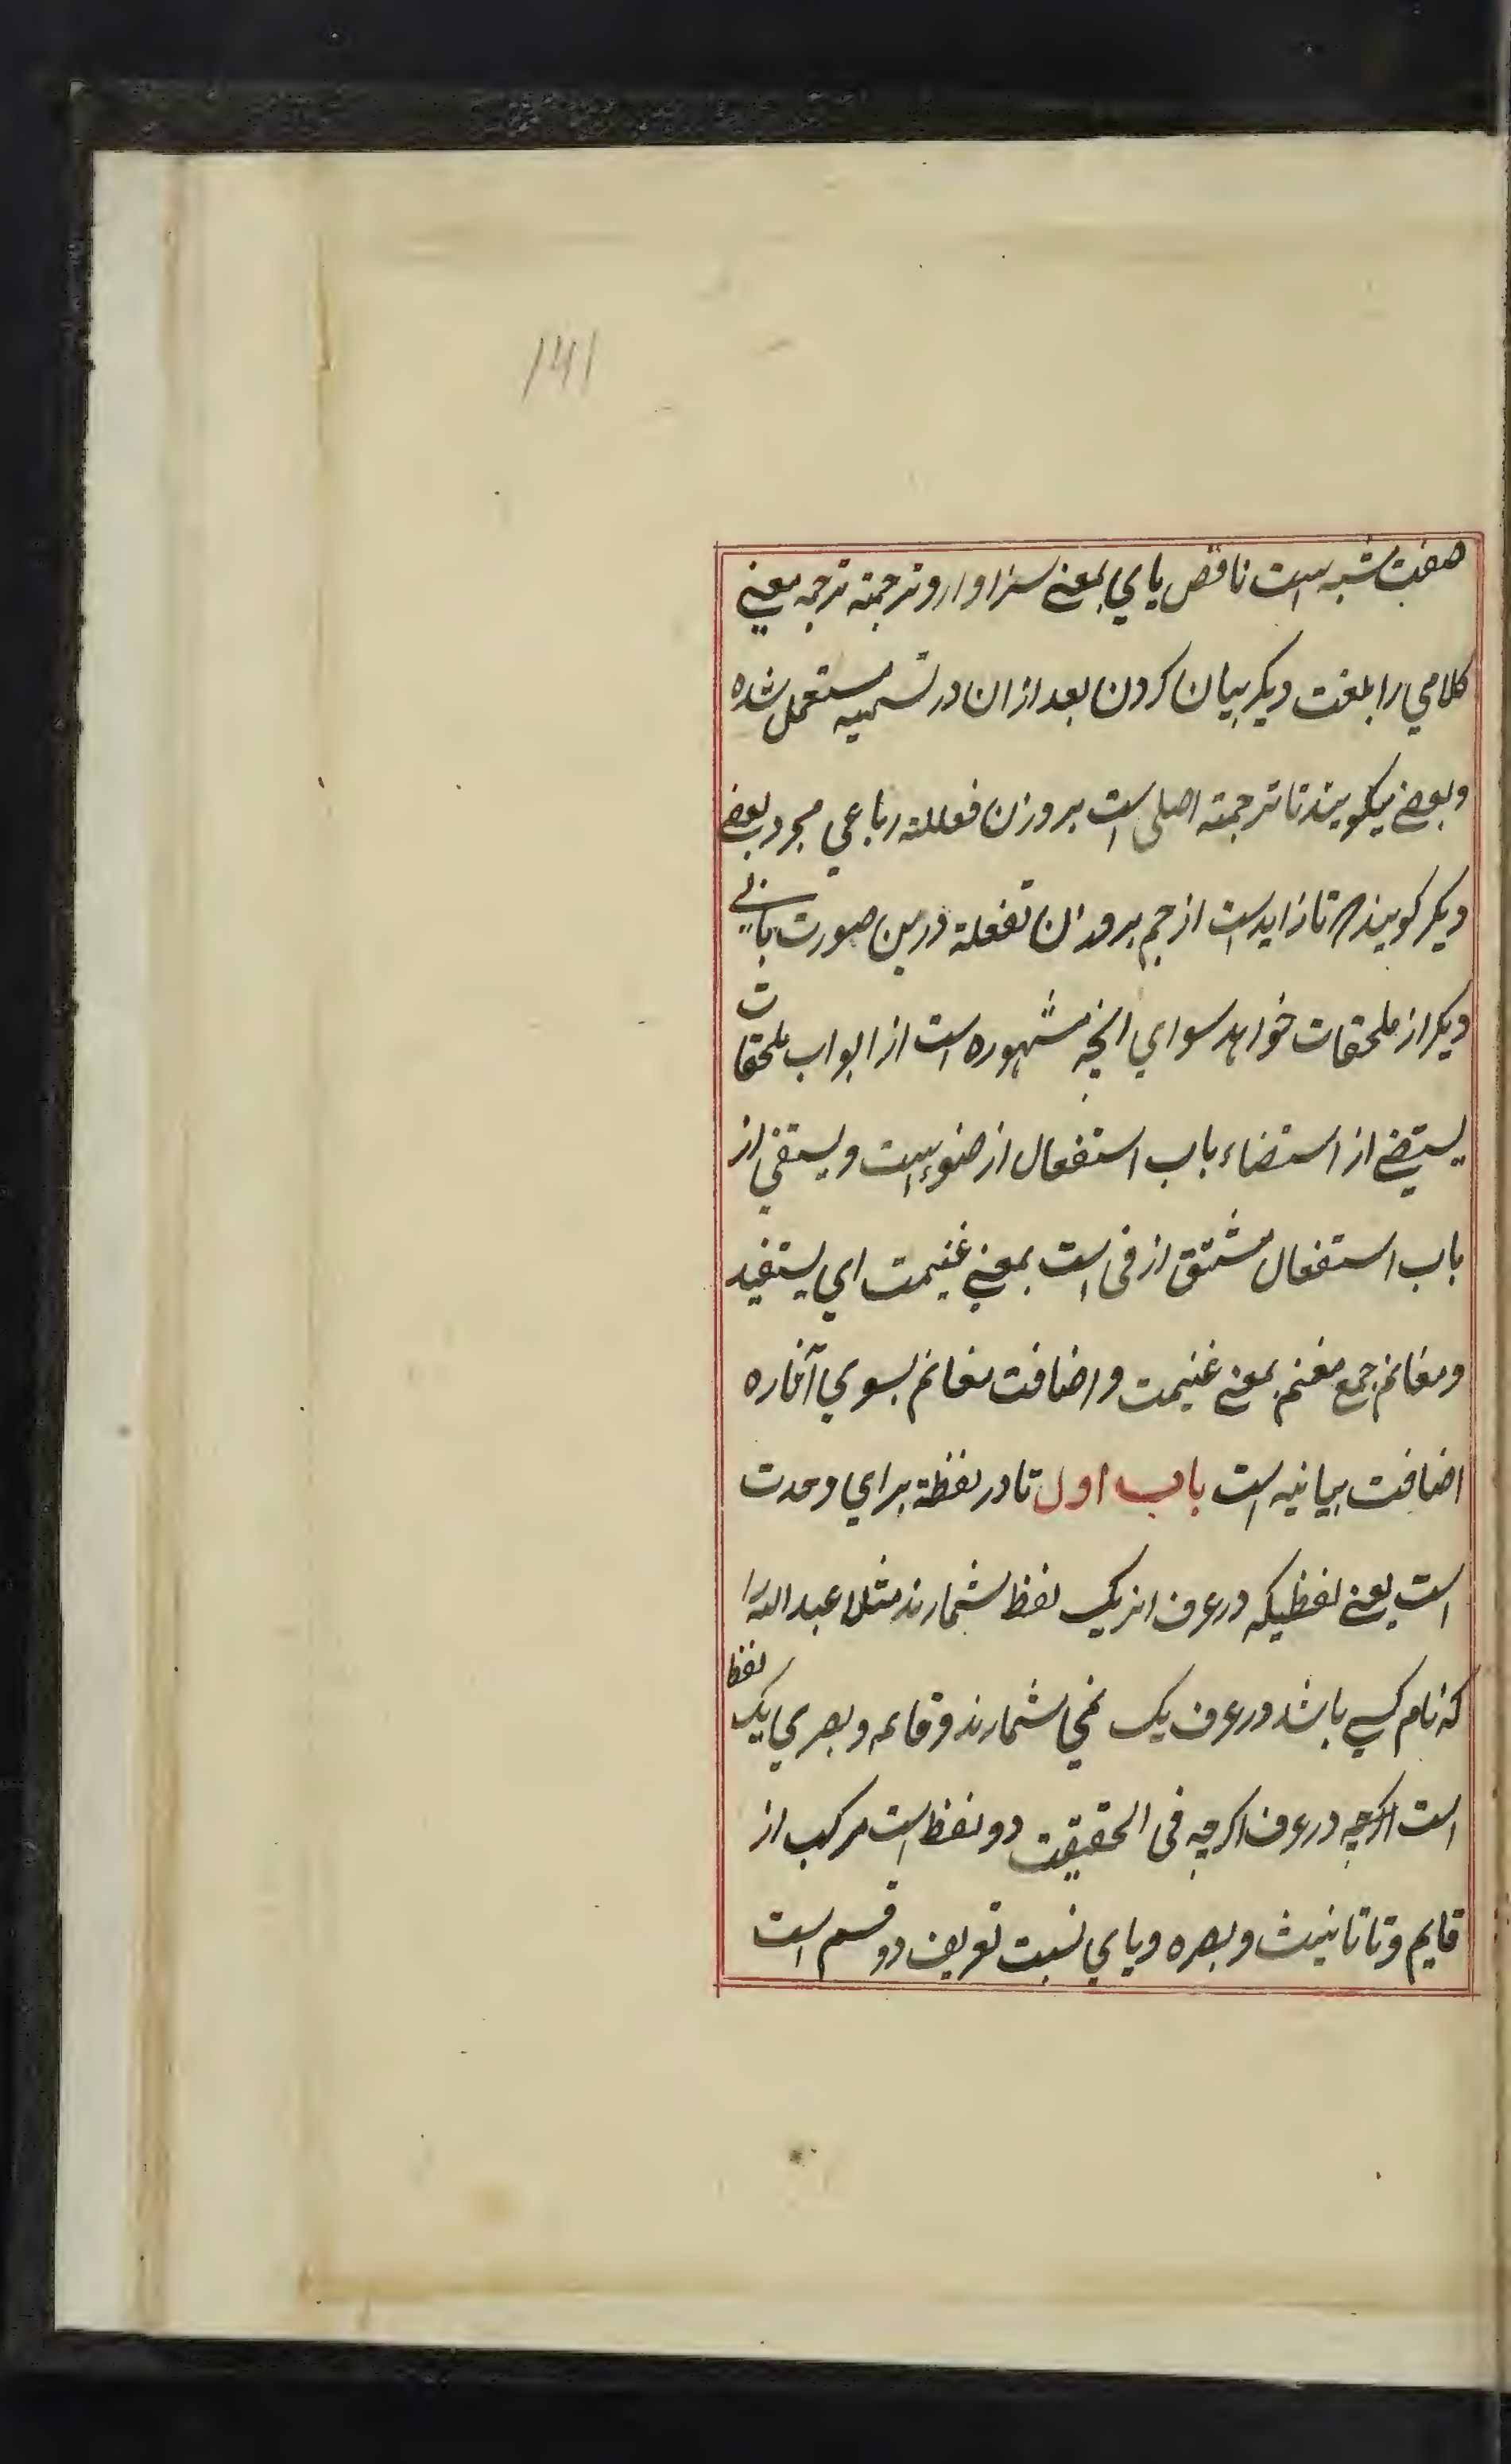 141
صفت مشبه است ناقص یاي بمعنے سزاوار و ترجمته ترجمه معنیے
کلامي را بلغت دیکر بیان کردن بعد ازان در تسمیه مستعمل شده
وبعضے میکویند تا ترجمته اصلی است بروزن فعللته رباعي مجرد بعضے
دیکر کویند تا زاید است از جم بروزن تفعلة درین صورت بابے
دیکر از ملحقات خواهد سواي انچه مشهوره است از ابواب ملحقات
یستضے از استضاء باب استفعال از ضوء است و یستفي از
باب استفعال مشتق از فی است بمعنے غنیمت اي یستفید
ومغانم جمع مغنم بمعنے غنیمت و اضافت مغانم بسوي آثاره
اضافت بیانیه است باب اول تا در لفظة براي وحدت
است یعنے لفظیکه در عرف انز یک لفظ شمارند مثلا عبد الله را
که نام کسے باشد در عرف یک نمي شمارند و قایمه و بصري یک لفظ
است اکرچه در عرف اکرچه فی الحقیقت دو لفظ است مرکب از
قایم و تا تانیث و بصره و یاي نسبت تعریف دو قسم است